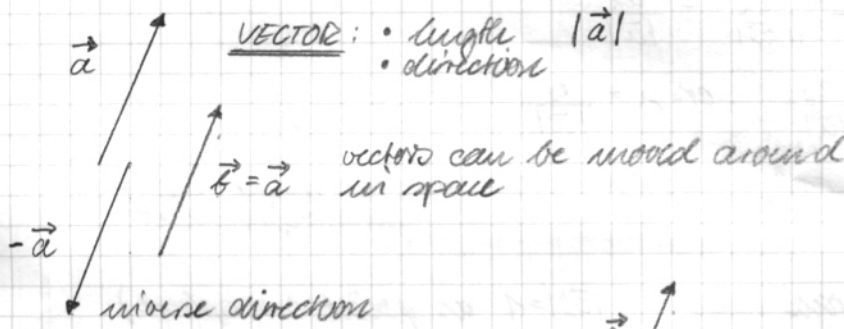 a⃗
VECTOR: • length |a⃗|
• direction
b⃗ = a⃗ vectors can be moved around
in space
-a⃗
inverse direction